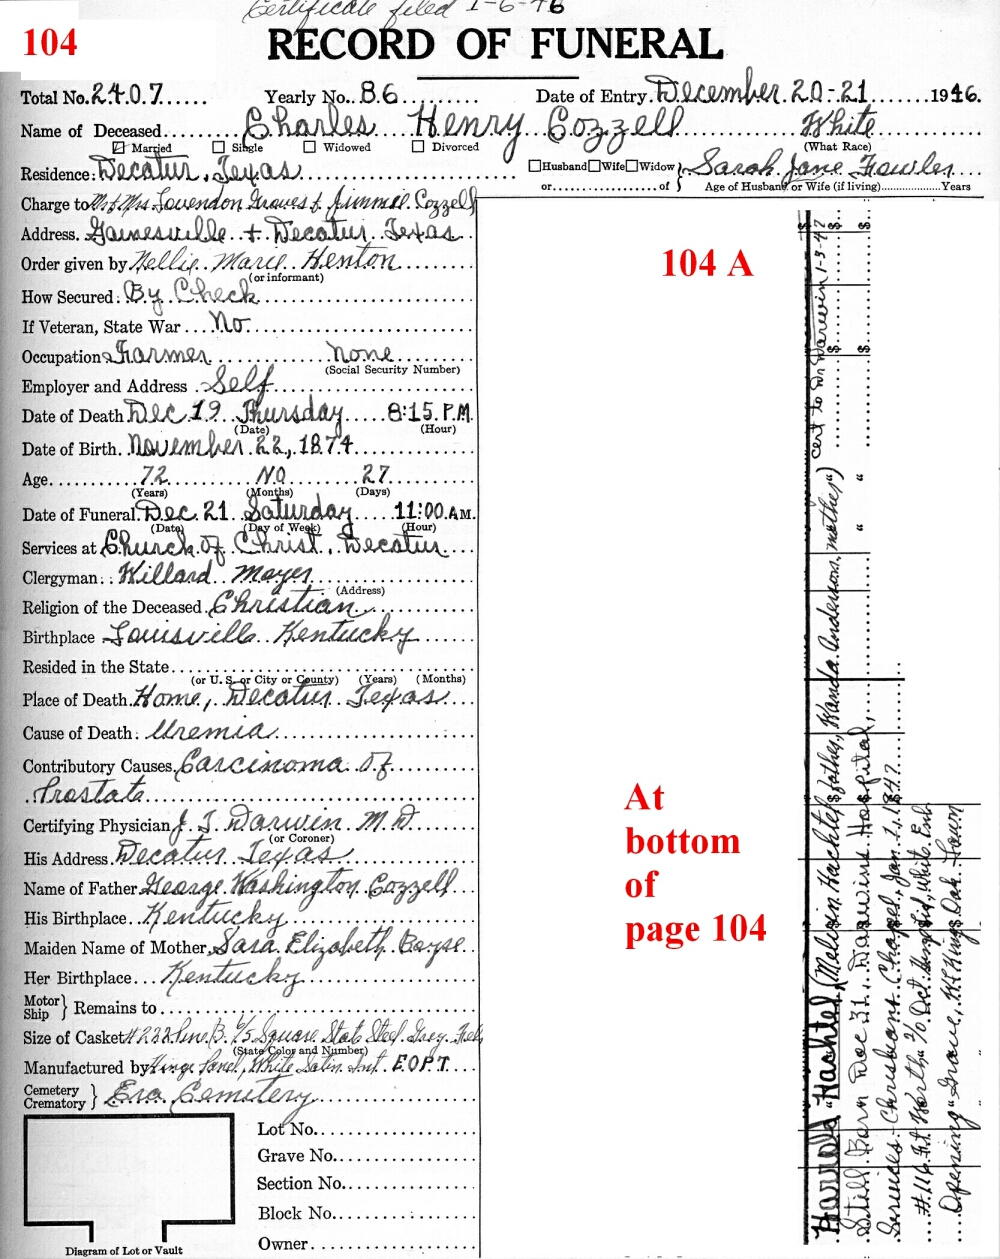 Certificate filed 1-6-46
104
RECORD OF FUNERAL
Total No. 2407 Yearly No. 86 Date of Entry. December 20-21 1946.
Name of Deceased Charles Henry Cozzell White
Married Single Widowed Divorced (What Race)
Residence: Decatur, Texas Husband Wife Widow } Sarah Jane Fowler
or of Age of Husband or Wife (if living) Years
Charge to Mr & Mrs Lavendon Graves & Jimmie Cozzell
Address. Gainesville + Decatur Texas
Order given by Nellie Marie Henton
(or informant)
How Secured: By Check
If Veteran, State War No
Occupation Farmer none
(Social Security Number)
Employer and Address Self
Date of Death Dec 19 Thursday 8:15 P.M.
(Date) (Hour)
Date of Birth. November 22, 1874
Age 72 No 27
(Years) (Months) (Days)
Date of Funeral. Dec. 21 Saturday 11:00 A.M.
(Date) (Day of Week) (Hour)
Services at Church of Christ, Decatur
Clergyman: Willard Moyer
(Address)
Religion of the Deceased. Christian
Birthplace Louisville Kentucky
Resided in the State
(or U. S. or City or County) (Years) (Months)
Place of Death. Home, Decatur Texas
Cause of Death: Uremia
Contributory Causes, Carcinoma of
Prostate
Certifying Physician J. J. Darwin M.D
(or Coroner)
His Address. Decatur Texas
Name of Father George Washington Cozzell
His Birthplace Kentucky
Maiden Name of Mother, Sara Elizabeth
Her Birthplace Kentucky
Motor
Ship } Remains to
Size of Casket #232 6/5 Square State Grey
(State Color and Number)
Manufactured by White Satin Int. F.O.P.T.
Cemetery
Crematory } Era Cemetery
Lot No.
Grave No.
Section No.
Block No.
Owner
Diagram of Lot or Vault
104 A
At
bottom
of
page 104
Harold "Hachtel" (Melvin Hachtel father, Wanda Anderson, mother) cert to Dr Darwin 1-3-47
Still Born Dec 31, Darwins Hospital, " "
Services - Chapel, Jan. 1, 1947
#116 Ft Worth White
Opening Grave, Oak Lawn